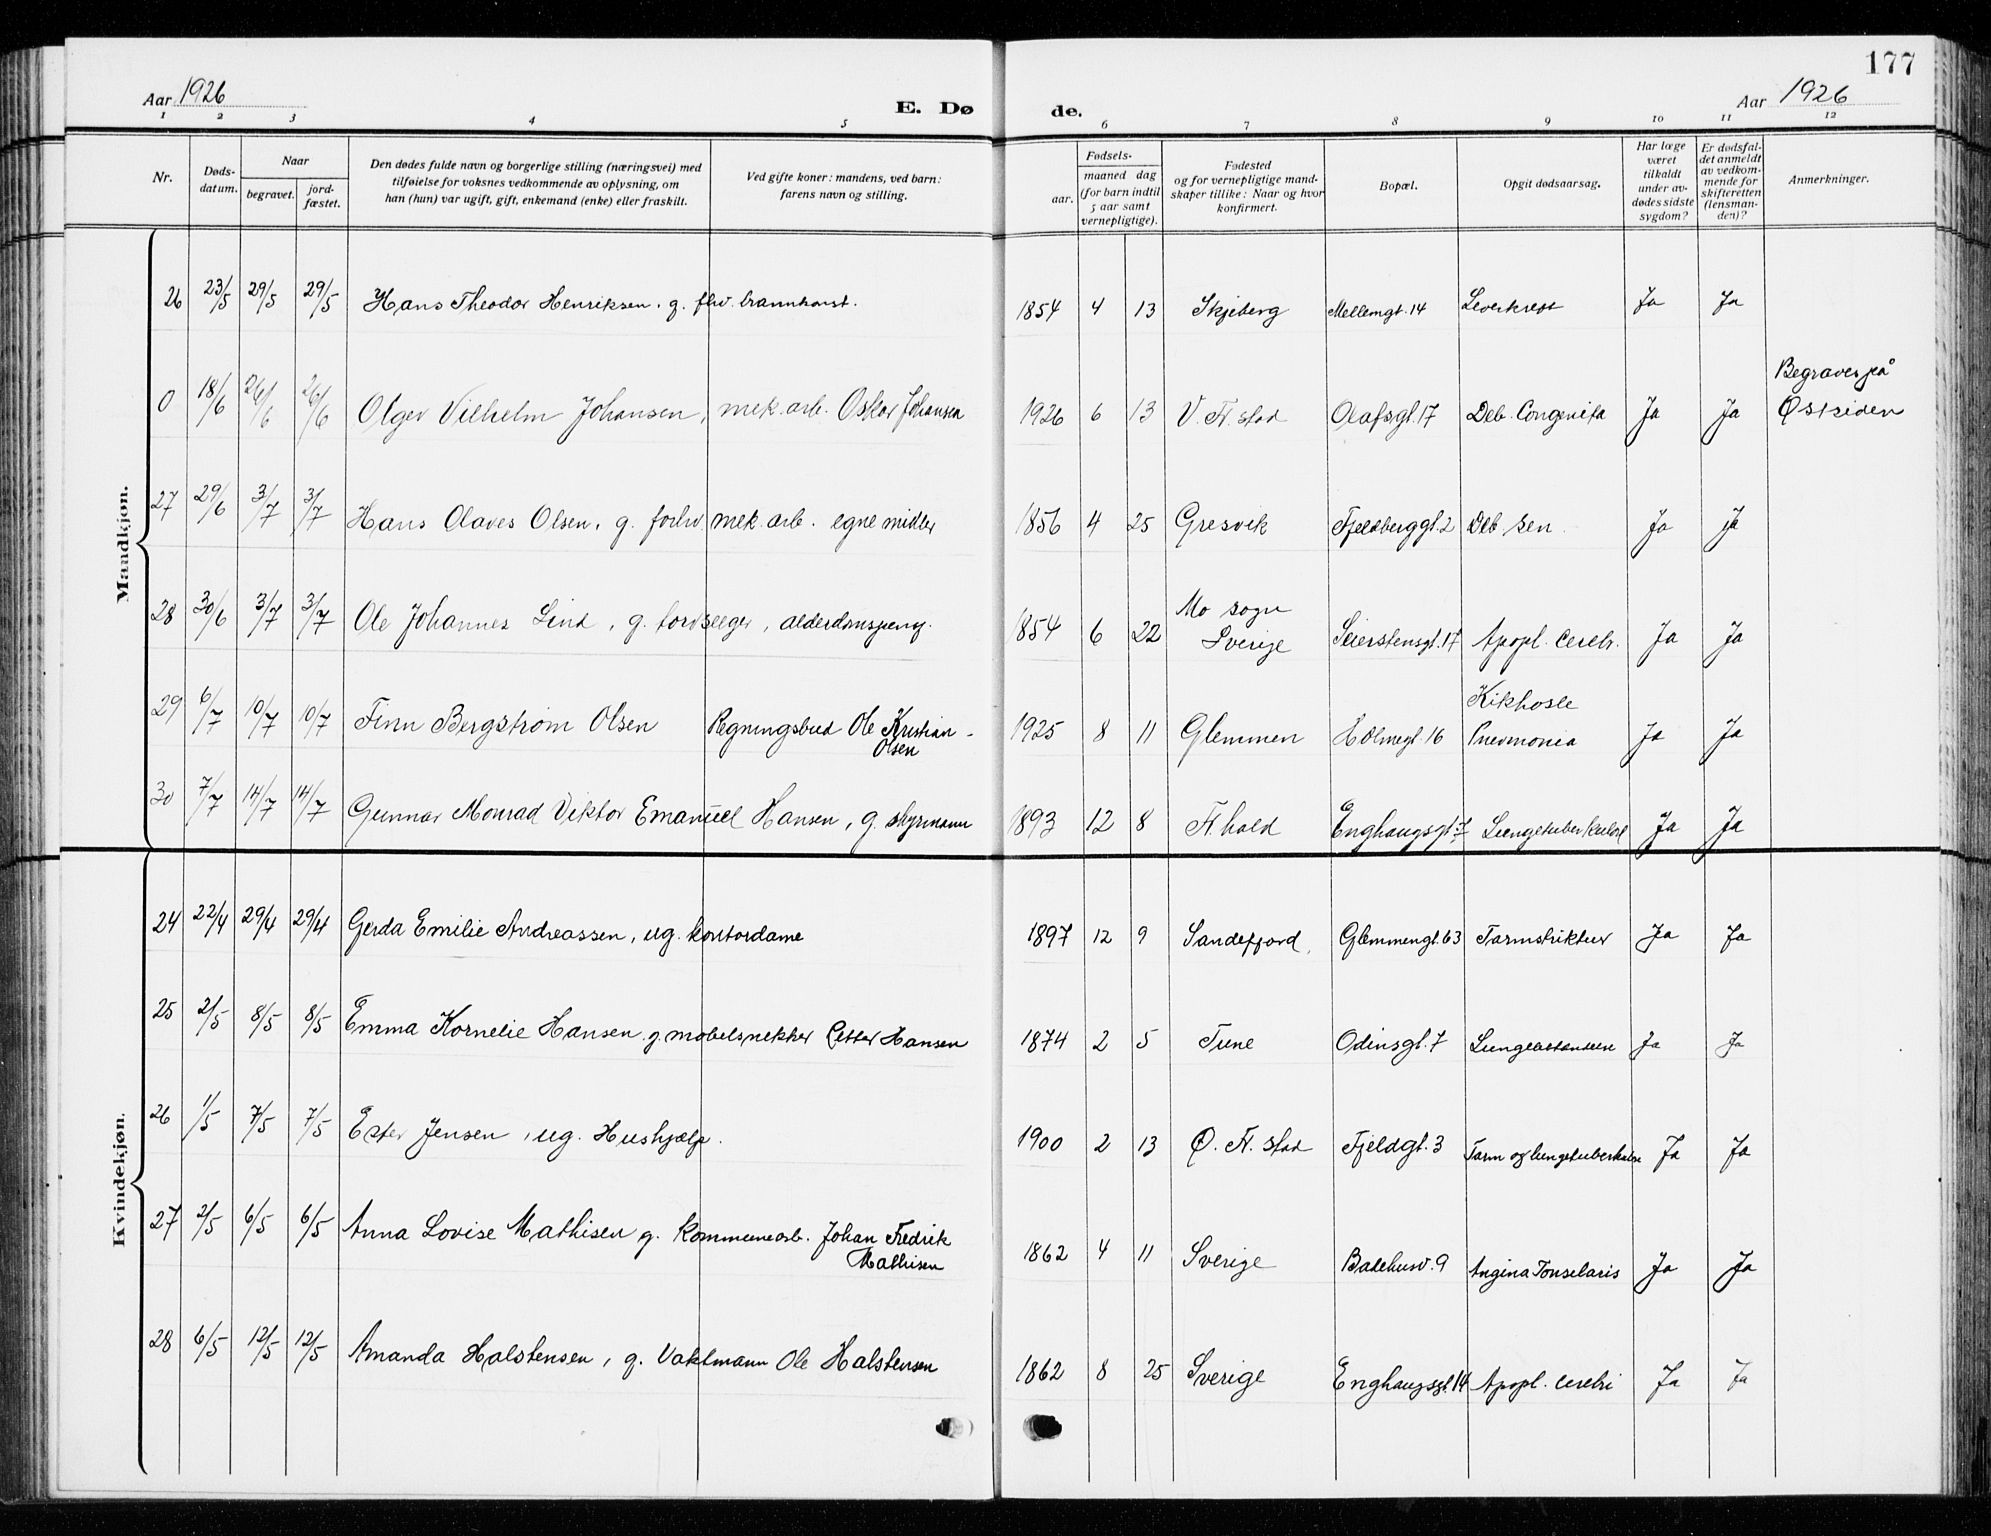 177
Aar 1926
E. Dø
de.
Aar 1926
1 2 3 4 5 6 7 8 9 10 11 12
Nr.
Døds-
datum.
Naar
begravet.
jord-
fæstet.
Den dødes fulde navn og borgerlige stilling (næringsvei) med
tilføielse for voksnes vedkommende av oplysning, om
han (hun) var ugift, gift, enkemand (enke) eller fraskilt.
Ved gifte koner: mandens, ved barn:
farens navn og stilling.
Fødsels-
aar.
maaned dag
(for barn indtil
5 aar samt
vernepligtige).
Fødested
og for vernepligtige mand-
skaper tillike: Naar og hvor
konfirmert.
Bopæl.
Opgit dødsaarsag.
Har læge
været
tilkaldt
under av-
dødes sidste
sygdom?
Er dødsfal-
det anmeldt
av vedkom-
mende for
skifteretten
(lensman-
den)?
Anmerkninger.
Mandkjøn.
26 23/5 29/5 29/5 Hans Theodor Henriksen. g. fhv. brannkonst. 1854 4 13 Skjeberg Mellemgt. 14 Leverkreft Ja Ja
0 18/6 26/6 26/6 Olger Vilhelm Johansen, mek. arb. Oskar Johansen 1926 6 13 V. Fr. stad Olafsgt. 17 Deb. Congenita Ja Ja Begraves på
Østsiden
27 29/6 3/7 3/7 Hans Olaves Olsen, g. forhv. mek. arb. egne midler 1856 4 25 Gresvik Fjeldberggt. 2 Deb. sen. Ja ja
28 30/6 3/7 3/7 Ole Johannes Lind, g. alderdomspeng. 1854 6 22 Mo sogn
Sverige Seierstensgt. 17 Apopl. cerebr. Ja Ja
29 6/7 10/7 10/7 Finn Bergstrøm Olsen Regningsbud Ole Kristian
Olsen 1925 8 11 Glemmen Holmegt. 16 Kikhoste
Pnevmonia Ja Ja
30 7/7 14/7 14/7 Gunnar Monrad Viktor Emanuel Hansen, g. styrmann 1893 12 8 Fr. hald Enghaugsgt. 7 Lungetuberkulose Ja Ja
Kvindekjøn.
24 22/4 29/4 29/4 Gerda Emilie Andreassen, ug. kontordame 1897 12 9 Sandefjord. Glemmengt. 63 Tarmstriktur Ja Ja
25 2/5 8/5 8/5 Emma Kornelie Hansen. g. møbelsnekker Petter Hansen 1874 2 5 Tune Odinsgt. 7 Ja Ja
26 1/5 7/5 7/5 Ester Jensen, ug. Hushjælp. 1900 2 13 Ø. Fr. stad Fjeldgt. 3 Tarm og lungetuberkulose Ja Ja
27 2/5 6/5 6/5 Anna Lovise Mathisen g. Kommunearb. Johan Fredrik
Mathisen 1862 4 11 Sverige Badehusv. 9 Angina Tonselaris Ja Ja
28 6/5 12/5 12/5 Amanda Halstensen, g. Vaktmann Ole Halstensen 1862 8 25 Sverige Enghaugsgt. 14 Apopl. cerebri Ja Ja